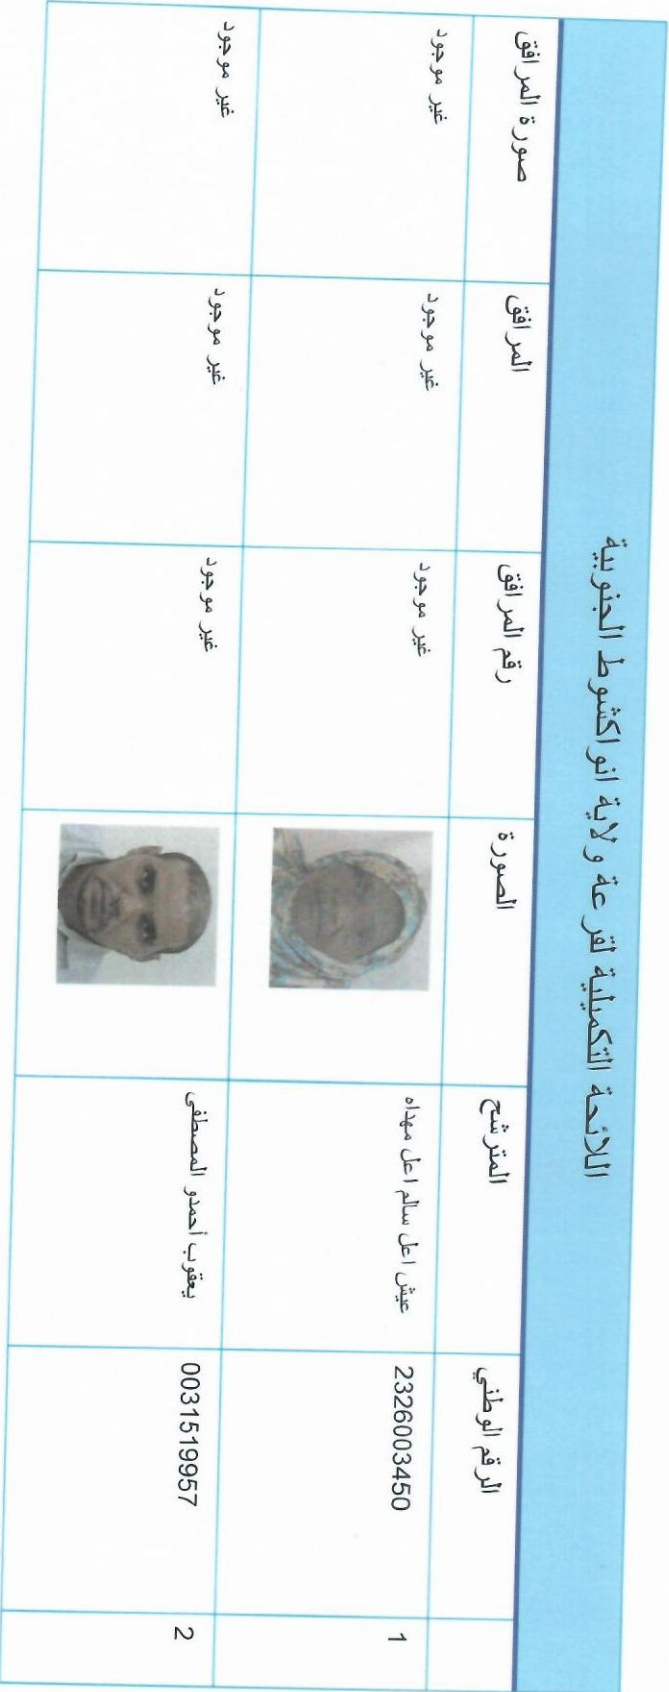 اللائحة التكميلية لقرعة ولاية انواكشوط الجنوبية
الرقم الوطني المترشح الصورة رقم المرافق المرافق صورة المرافق
1 2326003450 عيش اعل سالم اعل مهداه غير موجود غير موجود غير موجود
2 0031519957 يعقوب أحمدو المصطفى غير موجود غير موجود غير موجود